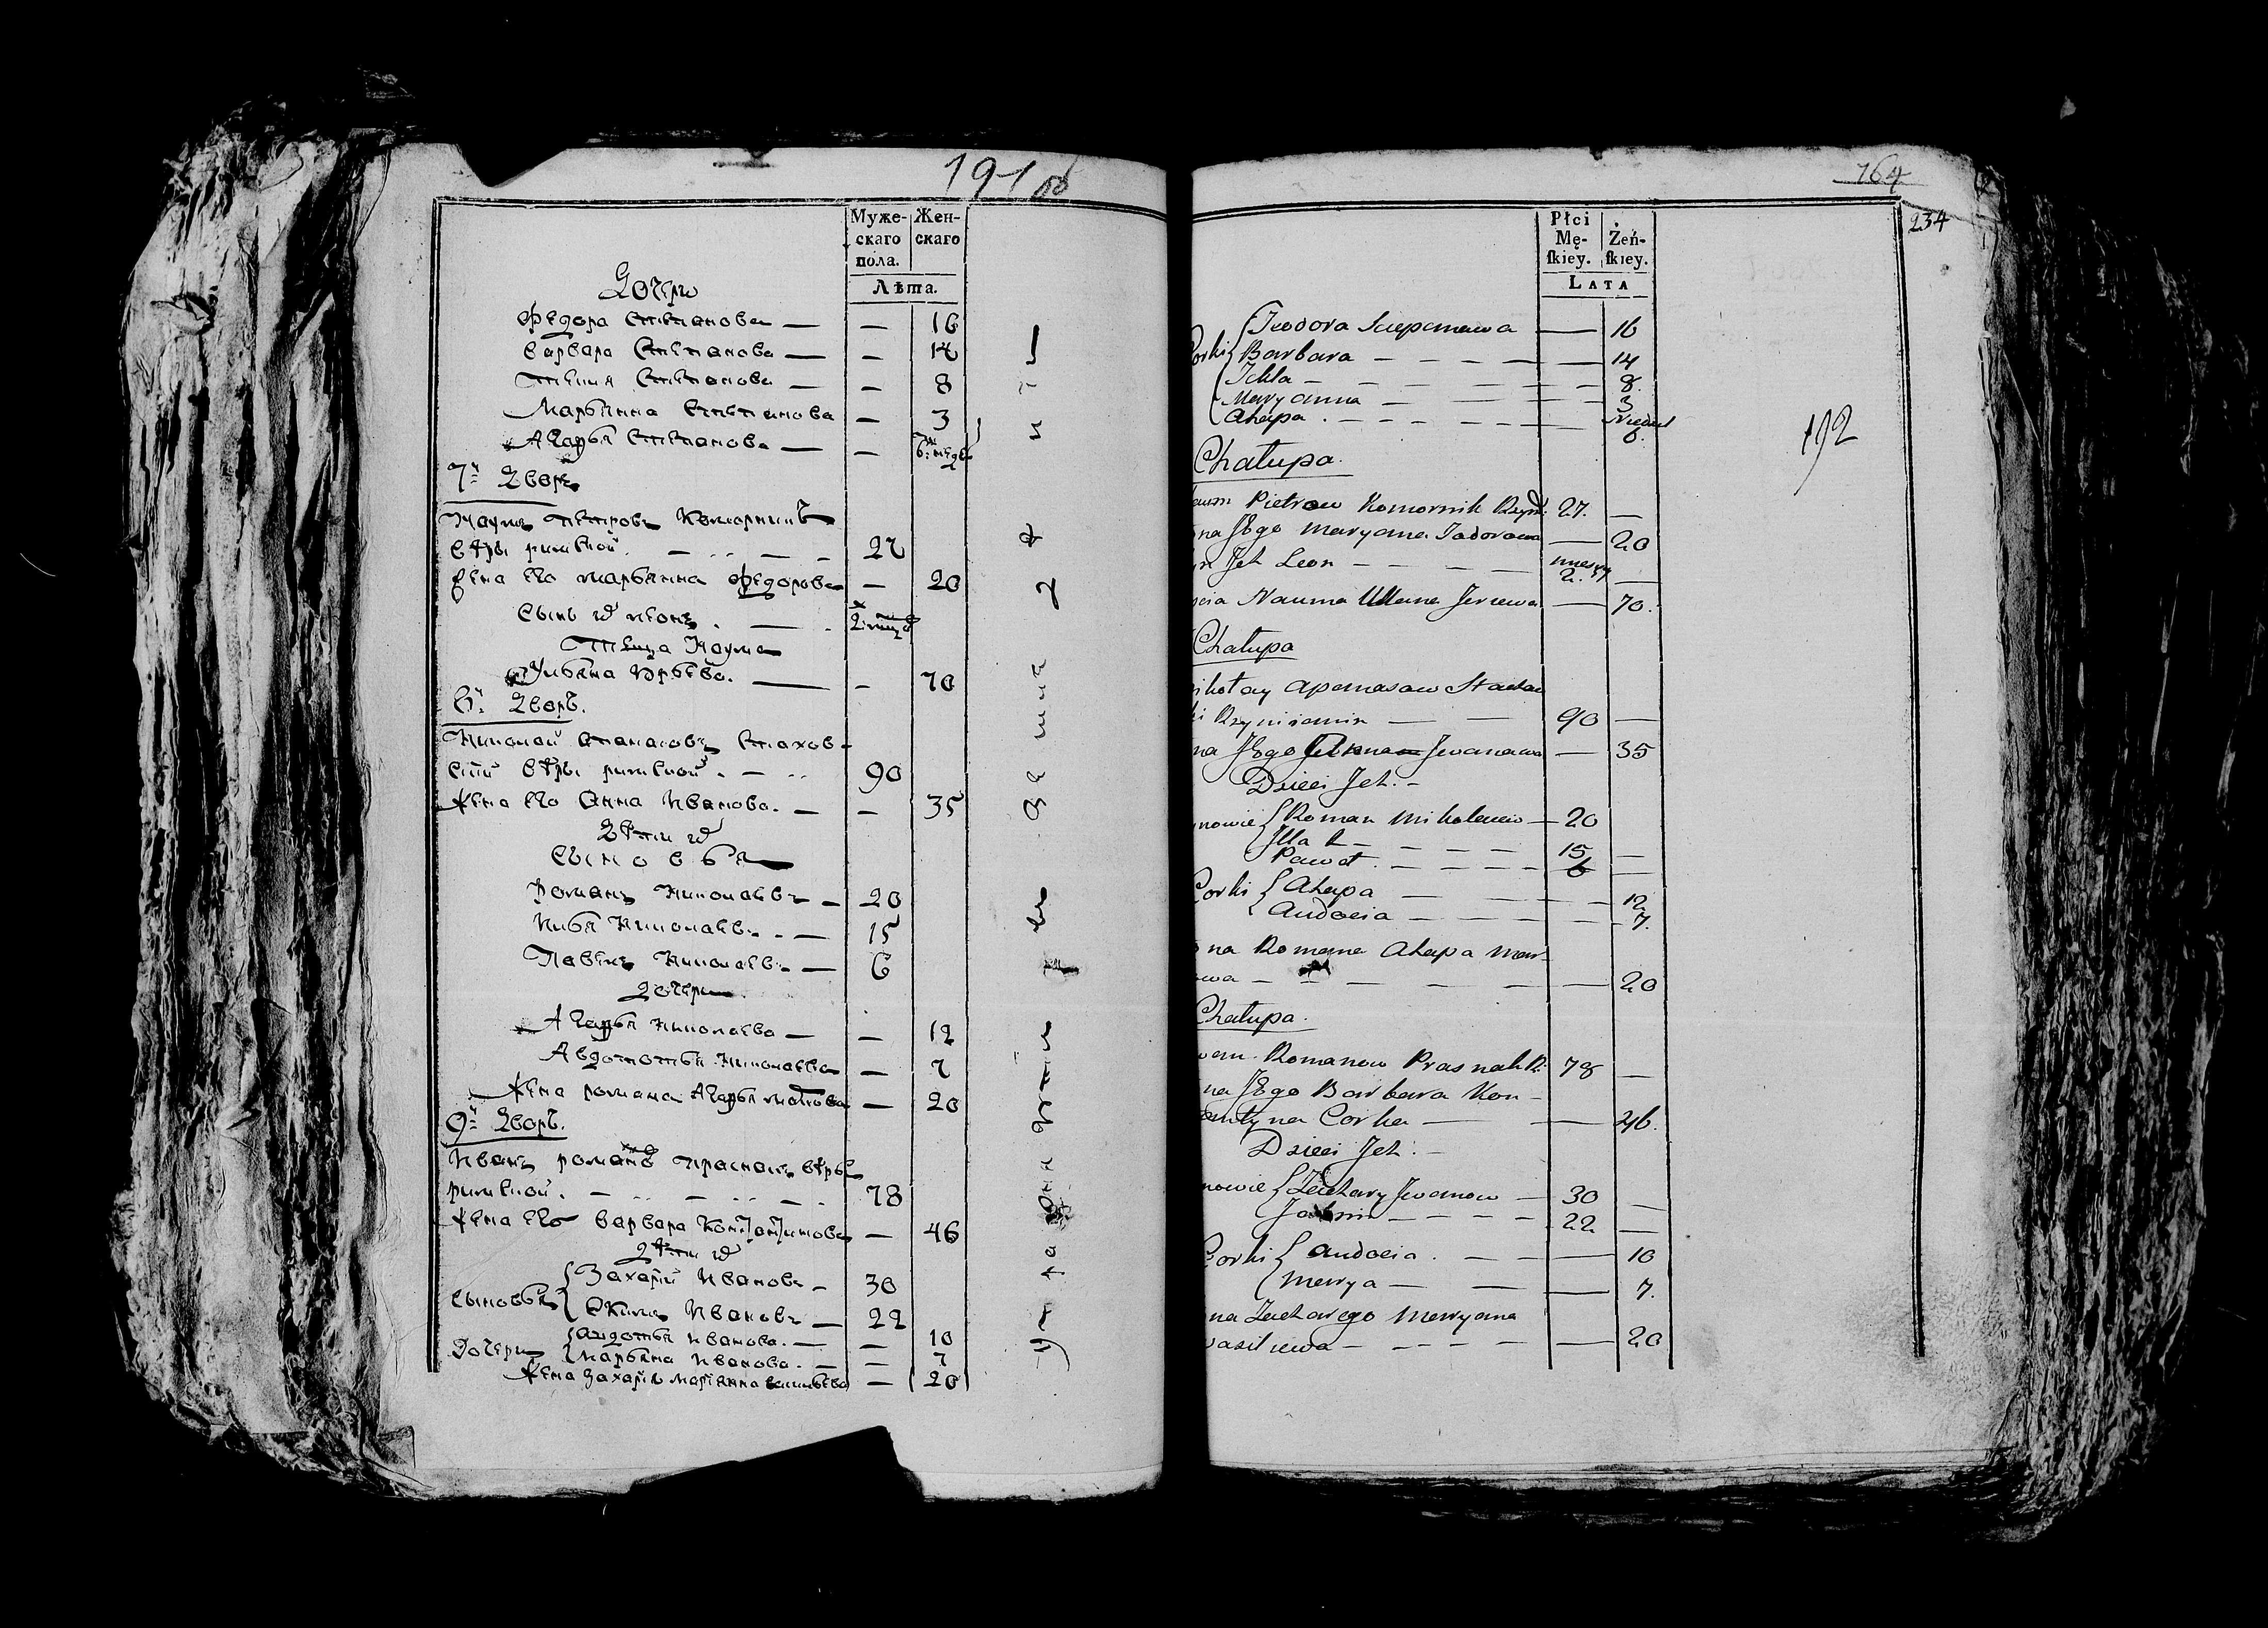 191 об
Муже-
скаго
пола.
Жен-
скаго
Лѣта.
Дочери
Федора Степанова — — 16
Варвара Степанова — — 14
Степанова — — 8
Марьянна Степанова — 3
Агафья Степанова — — 8. недѣ
7й Дворъ
Наумъ Петровъ Коморникъ
вѣры римской. — — 27
Жена его Марьянна Федорова — 20
Сынъ их Леонъ. — 2. мцы
Теща Наума
Ульяна Юрьева. — — 70
8й Дворъ.
Николай Апанасовъ Стахов-
скій вѣры римской. — 90
Жена его Анна Иванова. — — 35
Дѣти их
Сыновья
Романъ Николаевъ — 20
Илья Николаевъ — 15
Павелъ Николаевъ — 6
Дочери
Агафья Николаева — — 12
Авдотья Николаева — 7
Жена Романа Агафья — 20
9й Дворъ.
Иванъ Романовъ Праснакъ вѣры
римской. — — 78
Жена его Варвара Константинова — 46
Дѣти их
Сыновья Захарій Ивановъ — 30
Якимъ Ивановъ — 22
Дочери Авдотья Иванова. — — 10
Марьяна Иванова. — — 7
Жена Захарія Маріанна Васильева — 20
164
234
192
Płci
Mę-
ſkiey.
Żeń-
ſkiey.
LATA
Corki Teodora Sciepanowa — 16
Barbara — — — 14
Tekla — — — 8.
Maryanna — — — 3
Ahapa — — — Niedziel 8.
Chałupa.
aum Pietrow Komornik Rzym. 27. —
na Jego Maryana Tadorowa — 20
n Jeh Leon — — miesięcy 2. —
scia Nauma Uliana Jeriewa — 70.
Chałupa
ikołay Apanasow Stachow
ki Rzymianin — — 90 —
na Jego Anna Jwanawa — 35
Dzieci Jeh. —
nowie Roman Mikolaiew — 20
Illa — — — 15 —
Paweł — — — 6 —
Corki Ahapa — — — 12
Audocia — — — 7.
na Romana Ahapa Mar-
owa — — — 20
Chałupa.
wan Romanow Prasnak R. 78 —
na Jego Barbara Kon-
antyna Corka — — 46.
Dzieci Jeh. —
nowie Zachary Jwanow — 30 —
— — — 22 —
Corki Audocia. — — — 10
Marya — — — 7.
na Zacharego Maryana
wasilewa — — — 20